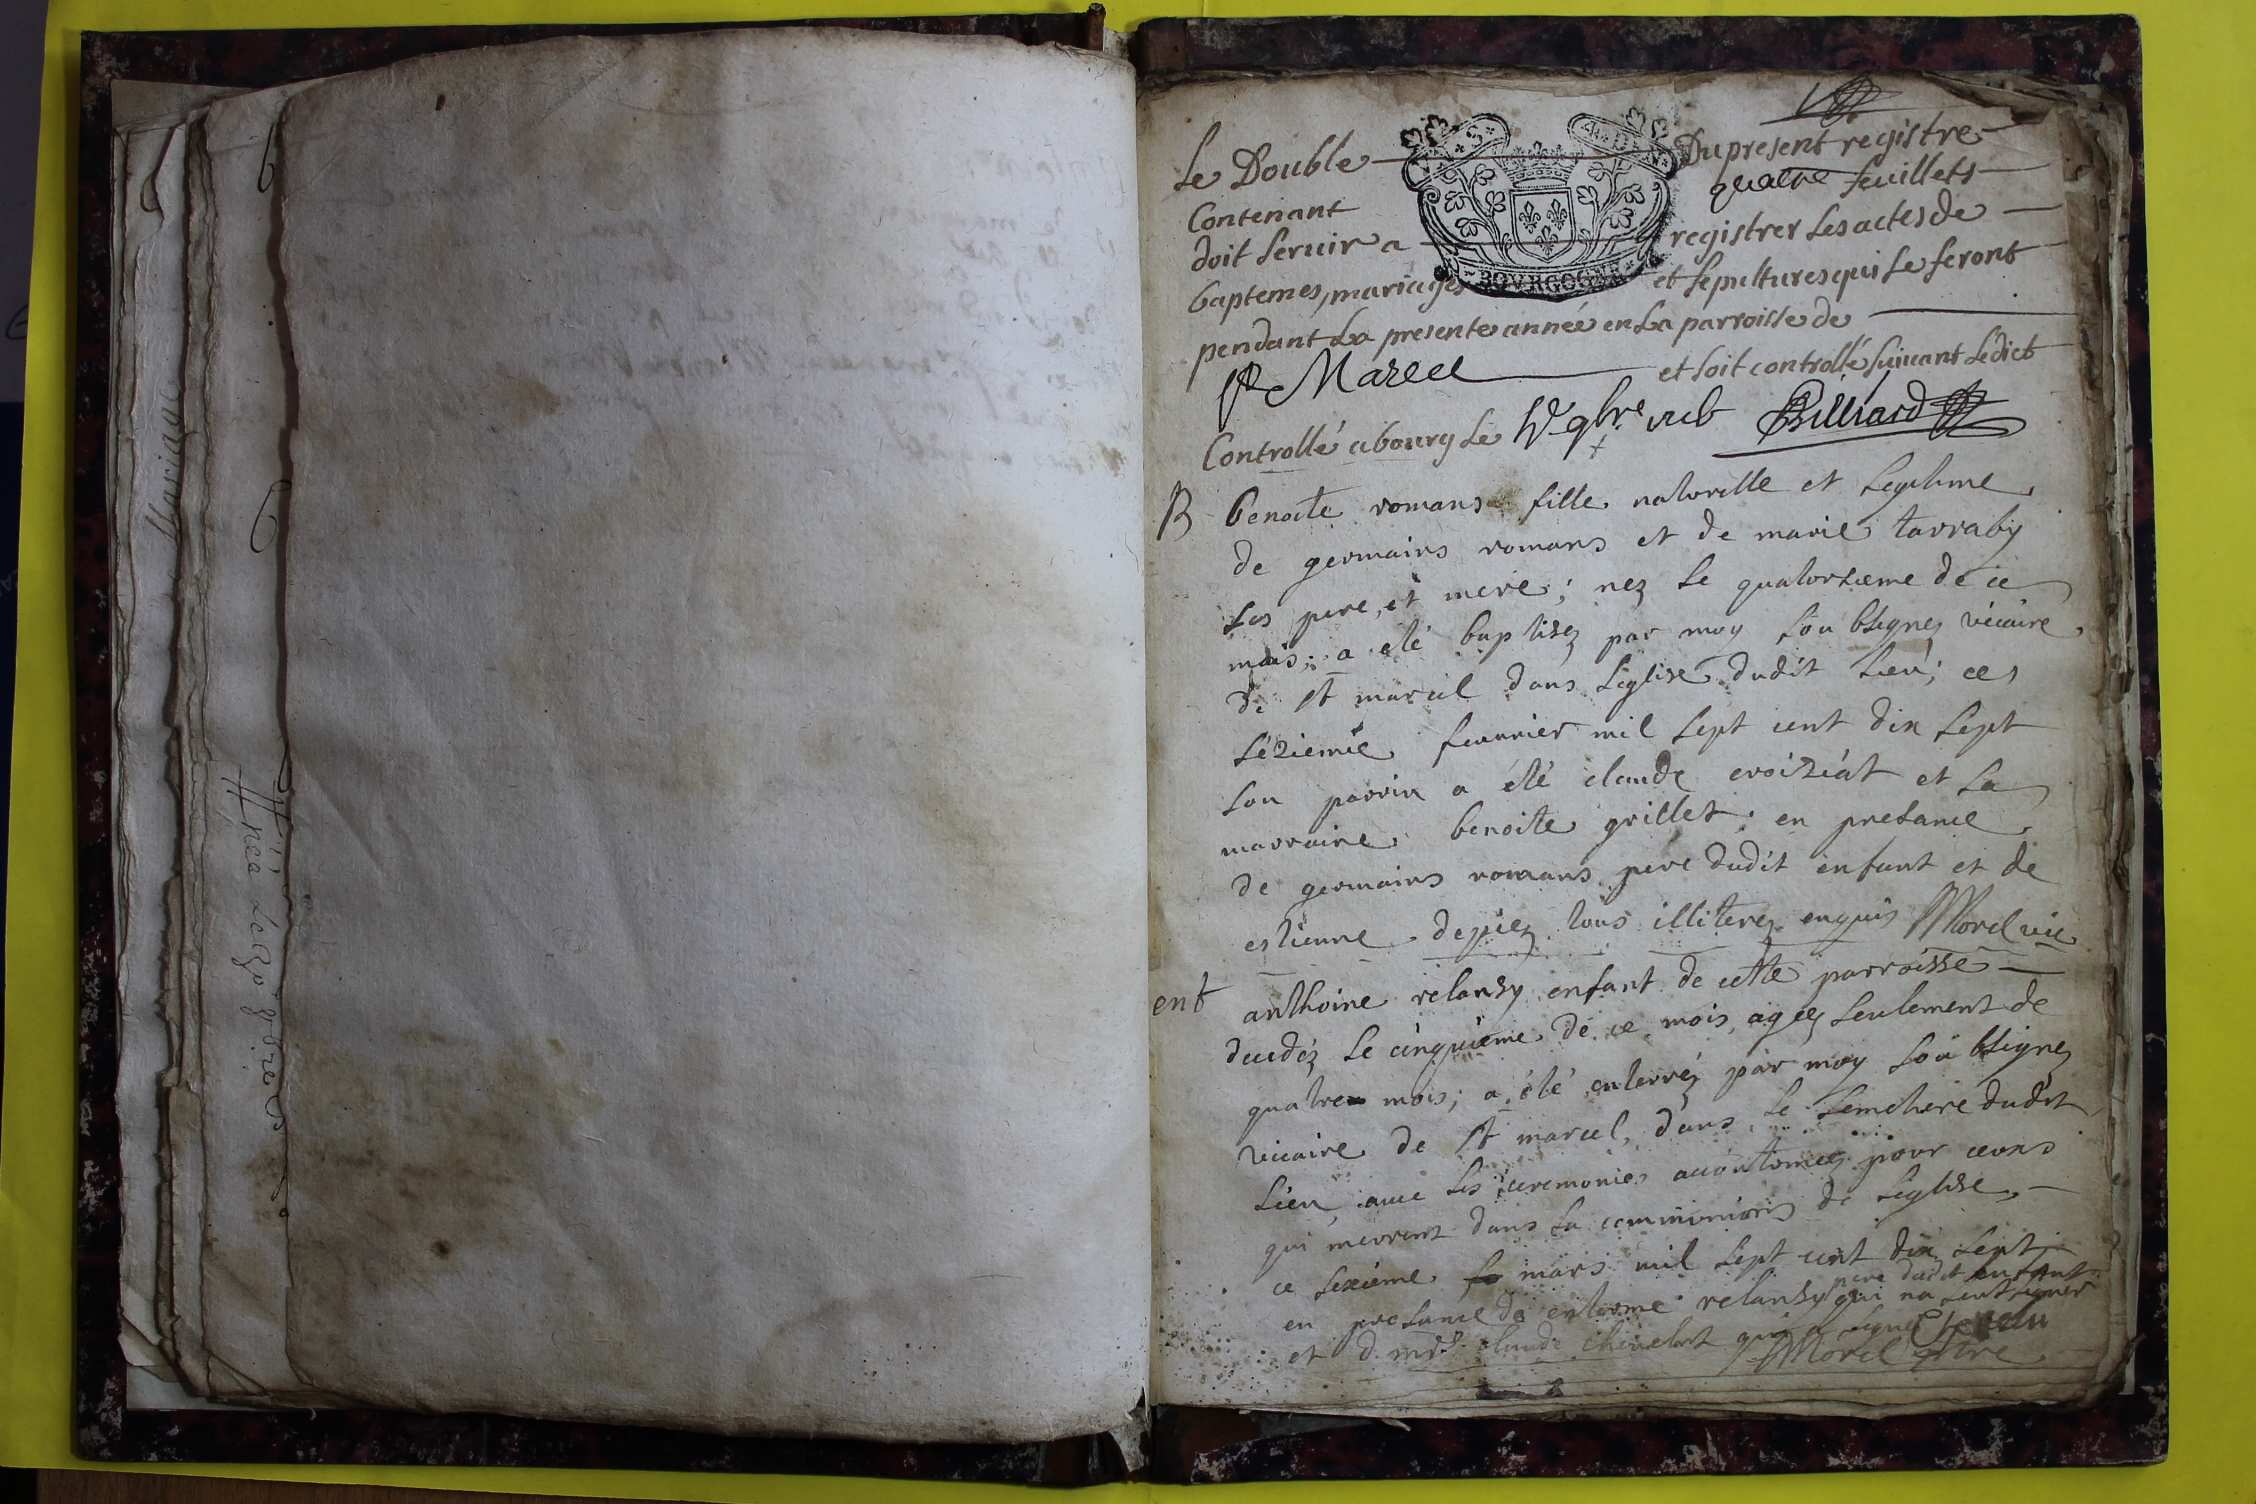 Mariage
Le Double Du present registre
Contenant quatre feuillets
doit servir a registrer les actes de
baptemes, mariages et sepultures qui se feront
BOVRGOGNE
pendant La presente année en La parroisse de
St Marcel et soit controllé suivant Ledict
Controllé a bourg Le 9bre Billiard
B benoite romans fille naturelle et legitime
de germains romans et de marie tarraby
ses pere et mere; nez le quatorsieme de ce
mois; a eté baptisez par moy soubsignez vicaire
de st marcel dans leglise dudit lieu; ce
sézieme feuvrier mil sept cent dix sept
son parrin a été claude croiziat et sa
marraine benoite grillet en presance
de germains romans pere dudit enfant et de
estienne tous illiterez enquis Morel vic
ent anthoine relansy enfant de cette parroisse
decedéz le cinquieme de ce mois, agéez seulement de
quatre mois; a été enterréz par moy soubsignez
vicaire de st marcel, dans le semetiere dudit
lieu, avec les ceremonies accoutumeez pour ceux
qui meurent dans la communion de leglise
ce sexieme mars mil sept cent dix sept
en presance de relansy pere dudit enfant qui na
et d. claude qui a signé
Morel